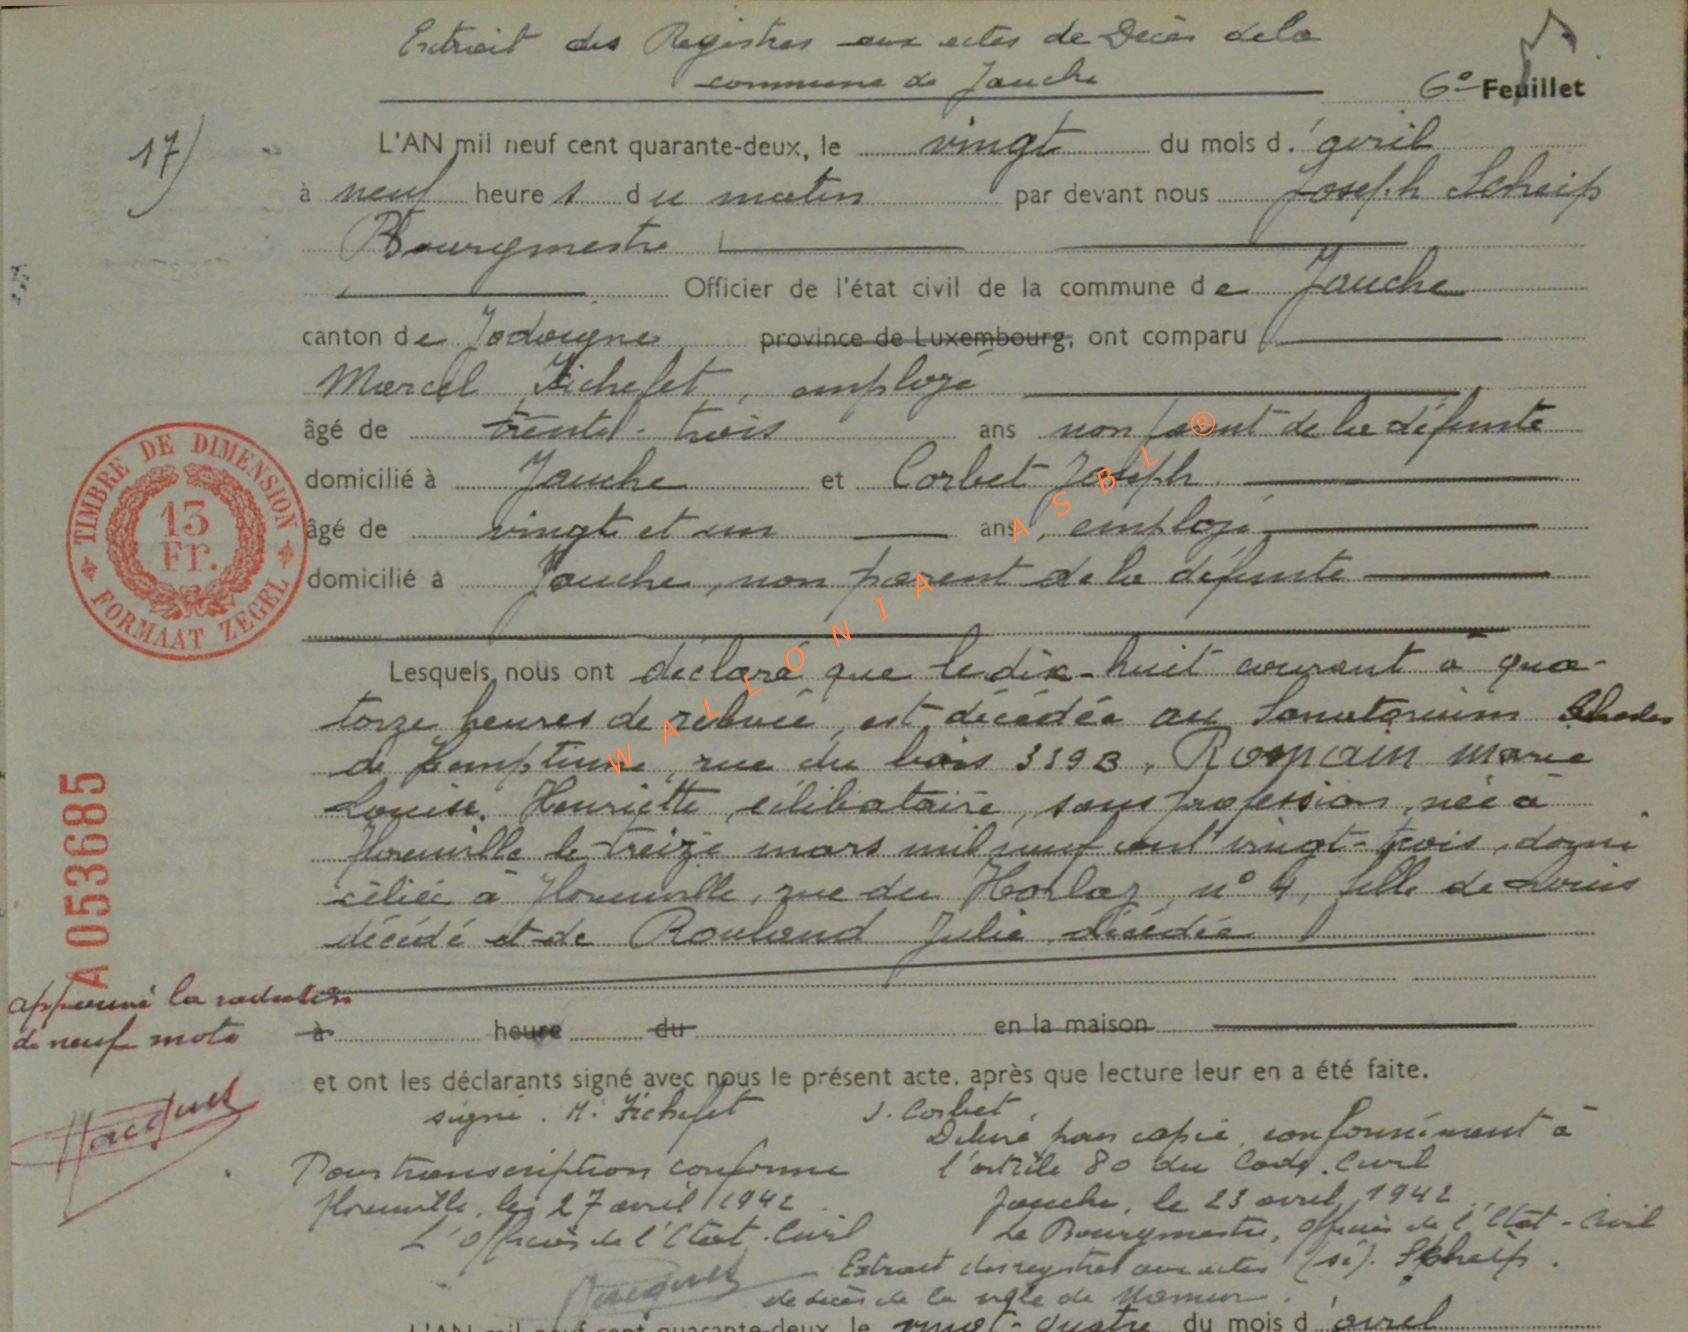 Extrait des Registres aux actes de Décès de la
commune de Jauche
6e Feuillet
17)
L'AN mil neuf cent quarante-deux, le vingt du mois d'avril
à neuf heures du matin par devant nous Joseph Scheip
Bourgmestre
Officier de l'état civil de la commune de Jauche
canton de Jodoigne province de Luxembourg, ont comparu
Marcel Fichefet, employé
âgé de trente-trois ans non parent de la défunte
domicilié à Jauche et Corbet Joseph
âgé de vingt et un ans, employé
domicilié à Jauche, non parent de la défunte
TIMBRE DE DIMENSION
13
Fr.
FORMAAT ZEGEL
Lesquels nous ont déclaré que le dix-huit courant à qua-
torze heures de relevée, est décédée au Sanatorium
de, rue du bois 339B, Romain Marie
Louise Henriette, célibataire, sans profession, née à
Florenville le treize mars mil neuf cent vingt-trois, domi
ciliée à Florenville, rue du, n° 4, fille de Louis
décédé et de Rouland Julie décédée
A053685
approuvé la radiation
de neuf mots
à heure du en la maison
et ont les déclarants signé avec nous le présent acte, après que lecture leur en a été faite.
signé. M. Fichefet J. Corbet.
Délivré pour copie conformément à
l'article 80 du Code Civil
Jauche, le 23 avril 1942
Le Bourgmestre, Officier de l'Etat-Civil
(sé). Scheip.
Pour transcription conforme
Florenville, le 27 avril 1942
L'Officier de l'Etat-Civil
Extrait des registres aux actes
de décès de la ville de Namur.
L'AN mil neuf cent quarante-deux, le vingt-quatre du mois d'avril
WALLONIA ASBL ®